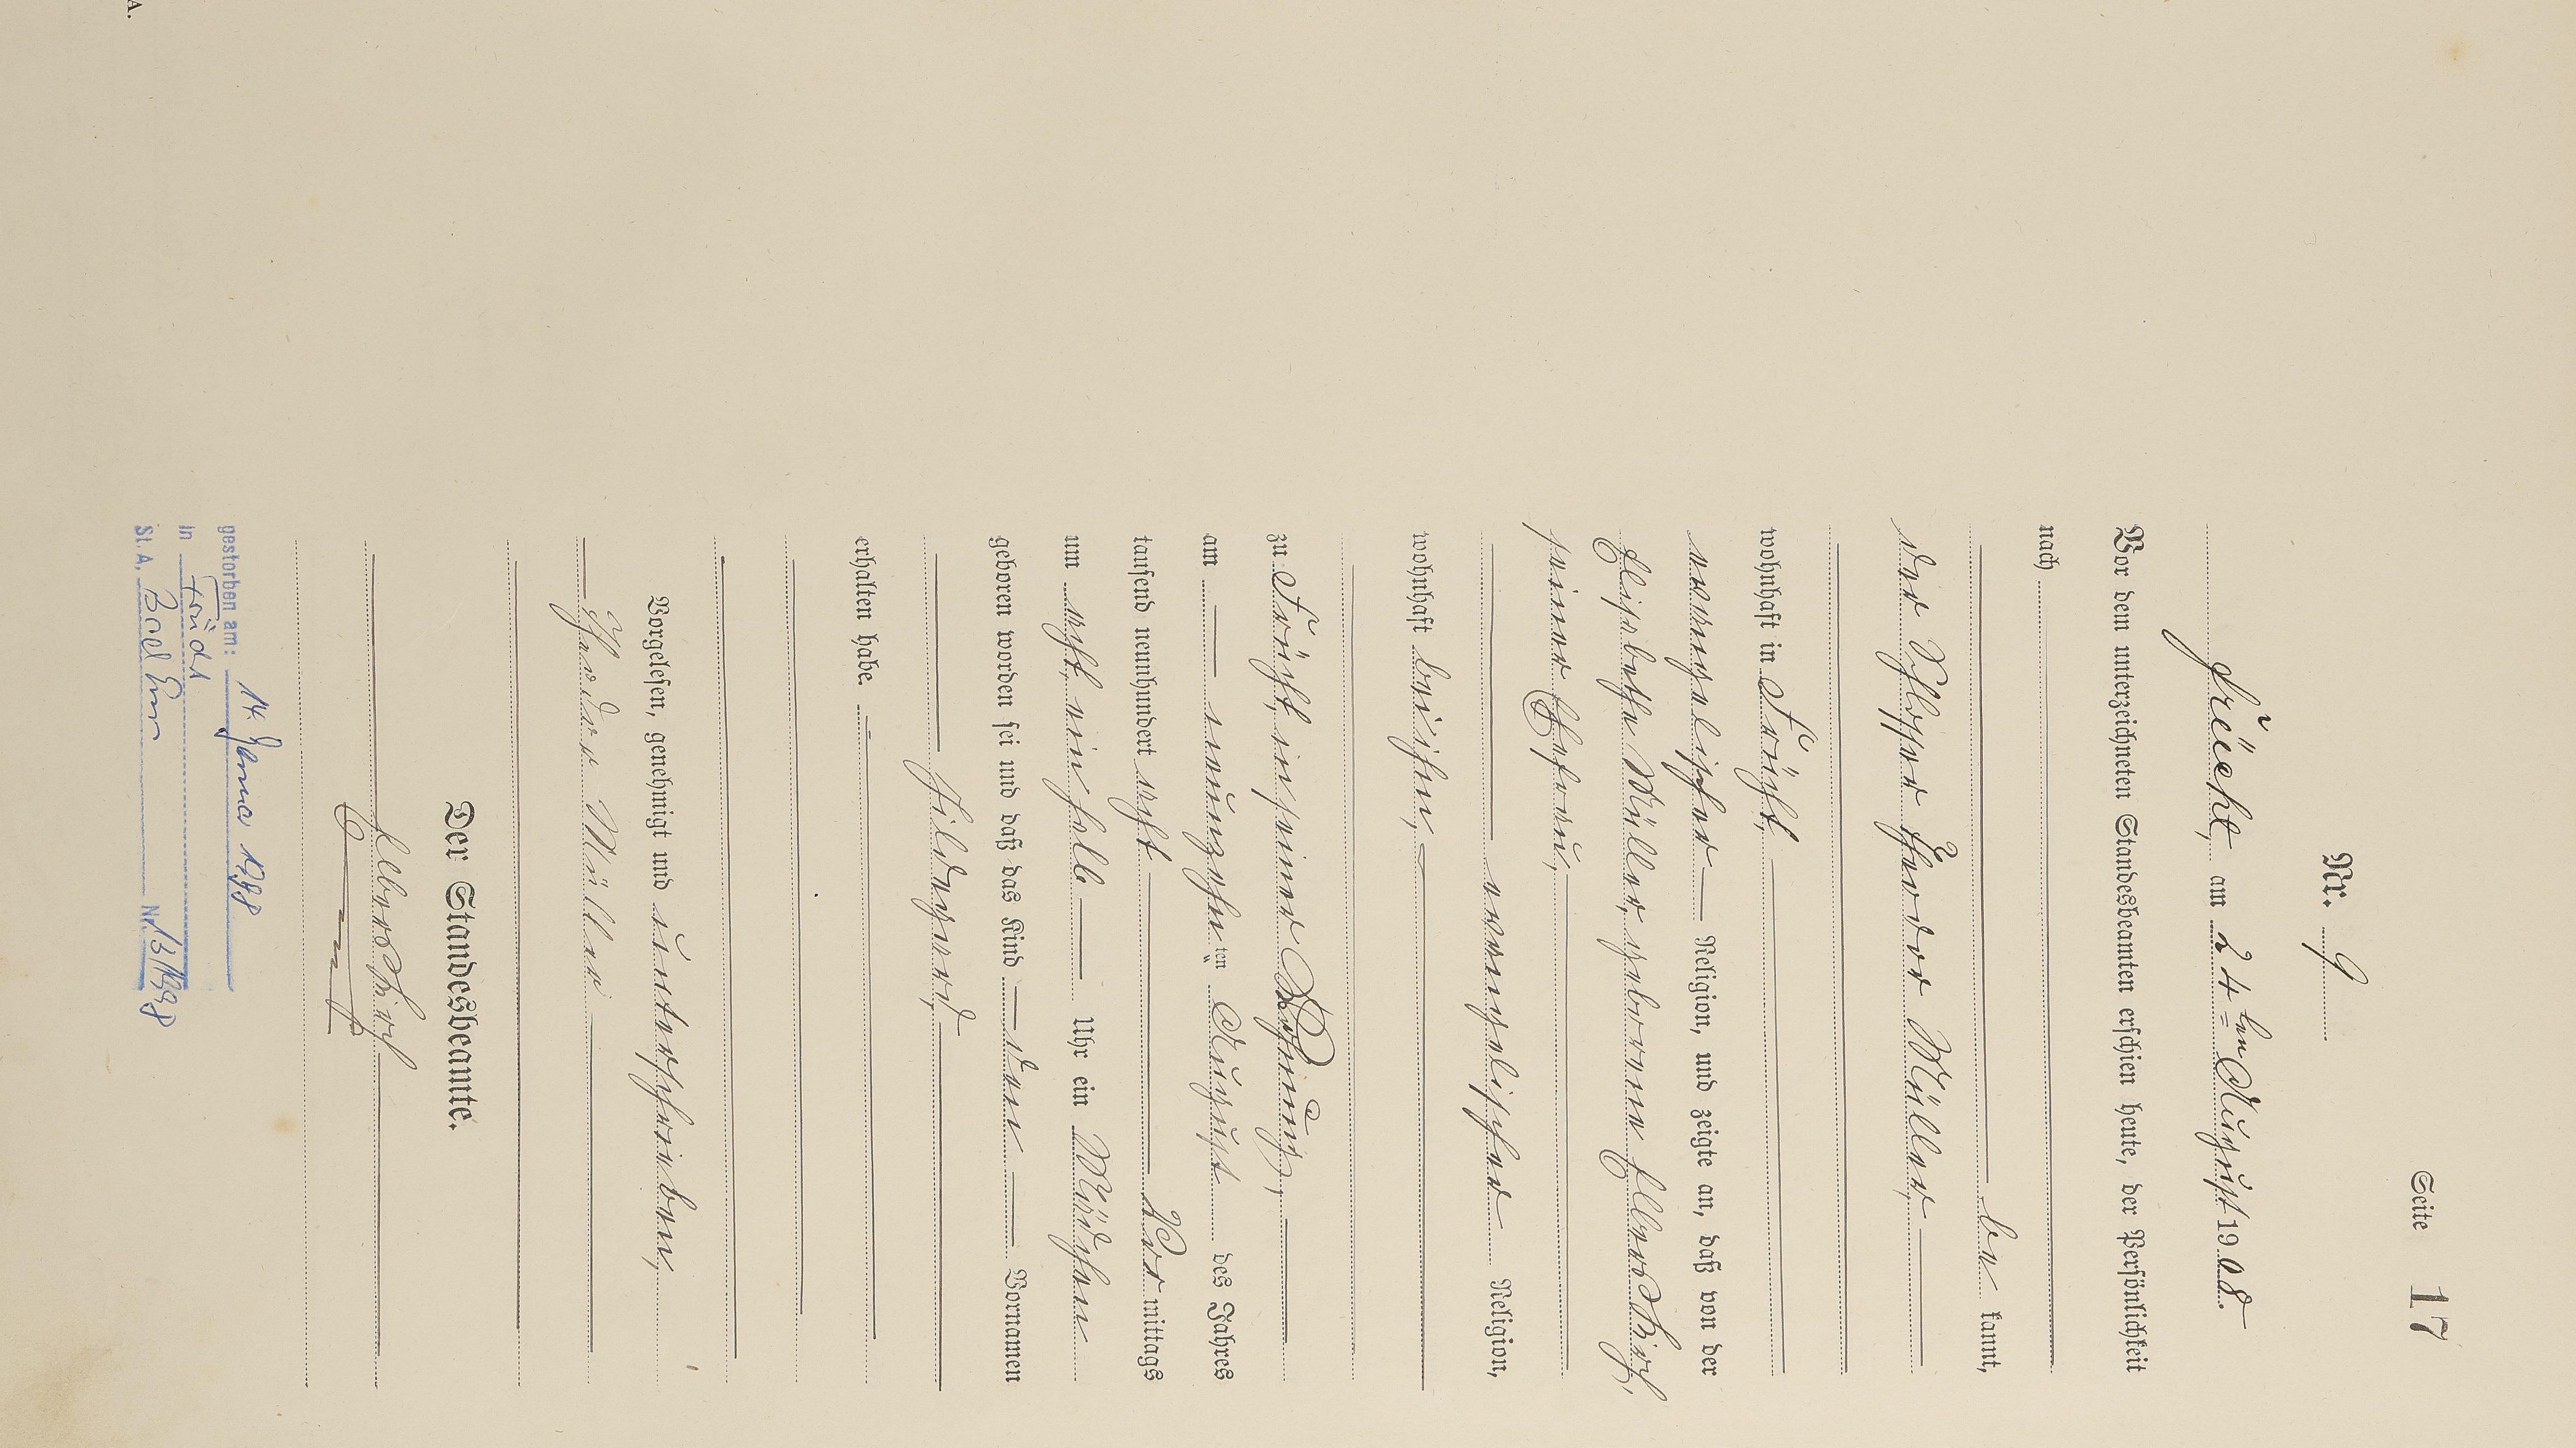 Seite 17
Nr. 9
Frücht, am 24=ten August 1908.
Vor dem unterzeichneten Standesbeamten erschien heute, der Persönlichkeit
nach
be kannt,
der Schlosser Theodor Müller,
wohnhaft in Frücht,
evangelischer Religion, und zeigte an, daß von der
Elisabethe Müller, geborenen Elbersskirch,
seiner Ehefrau,
evangelischer Religion,
wohnhaft bei ihm,
zu Frücht, in seiner Wohnung,
am neunzehn ten August des Jahres
tausend neunhundert acht Vor mittags
um acht ein halb Uhr ein Mädchen
geboren worden sei und daß das Kind den Vornamen
Hildegard,
erhalten habe.
Vorgelesen, genehmigt und unterschrieben,
Theodor Müller
Der Standesbeamte.
gestorben am: 14. Januar 1998
in Frücht
St. A. Bad Ems Nr. 13/1998
A.